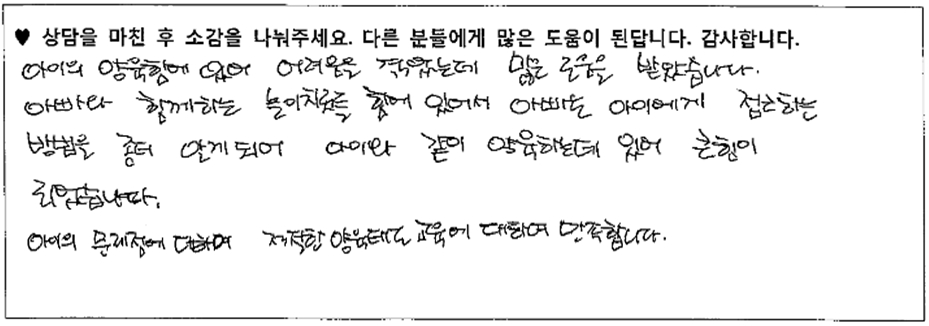 ♥ 상담을 마친 후 소감을 나눠주세요. 다른 분들에게 많은 도움이 된답니다. 감사합니다.
아이의 양육함에 있어 어려움을 겪었는데 많은 도움을 받았습니다.
아빠와 함께하는 놀이치료를 함에 있어서 아빠도 아이에게 접근하는
방법을 좀더 알게 되어 아이와 같이 양육하는데 있어 큰힘이
되었습니다.
아이의 문제점에 대하여 양육태도 교육에 대하여 만족합니다.